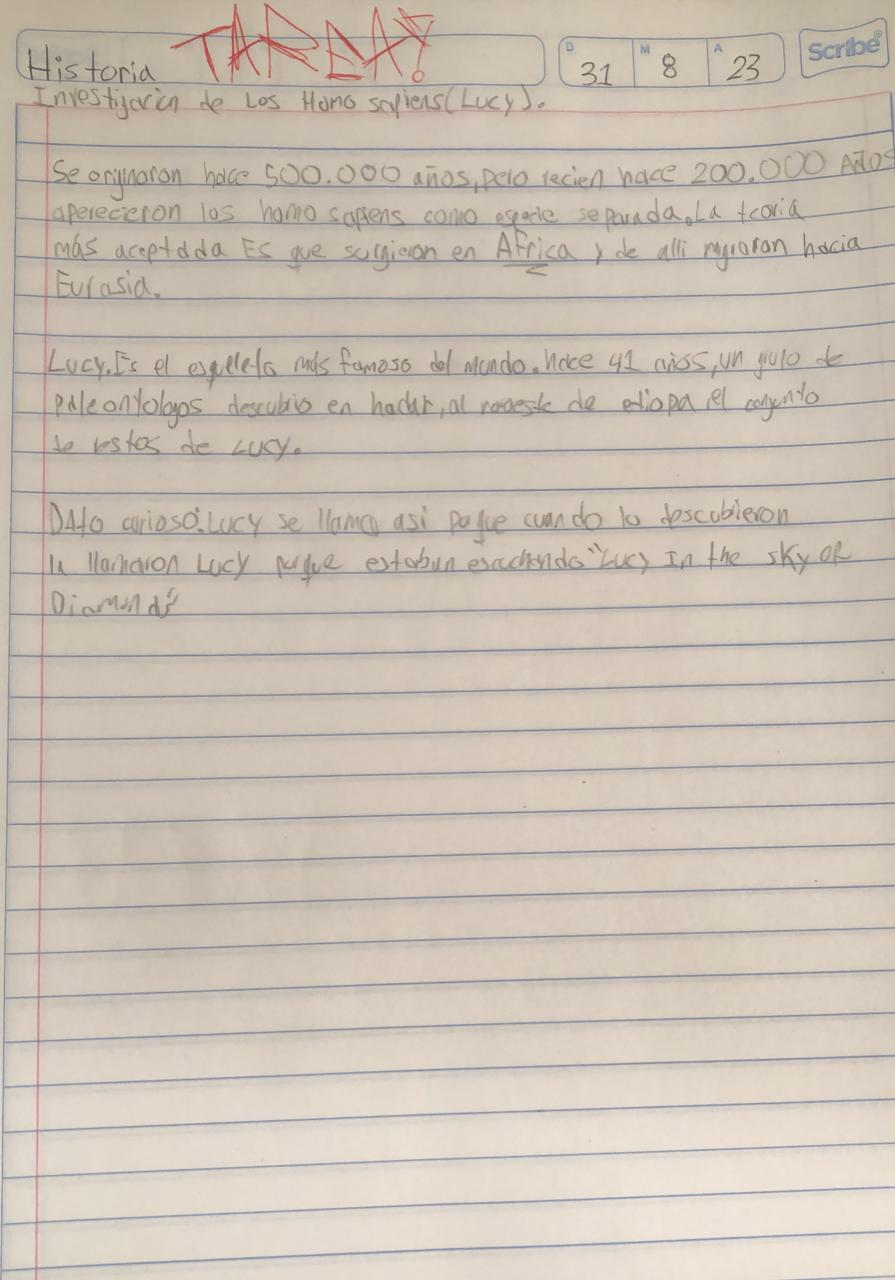 Historia TAREA!
D 31 M 8 A 23
Scribe®
Investigación de Los Homo sapiens(Lucy).
Se originaron hace 500.000 años, pero recien hace 200.000 AÑOS
aperecieron los homo sapiens como especie separada. La teoria
más aceptada Es que surgieron en Africa y de alli migraron hacia
Eurasia.
Lucy. Es el esqueleto más famoso del Mundo. hace 41 años, un grupo de
paleontologos descubrio en hadar, al noroeste de etiopa, el conjunto
de restos de Lucy.
DAto curioso: Lucy se llama asi porque cuando la descubieron
la llamaron Lucy porque estaban escuchando "Lucy In the sky OF
Diamonds"